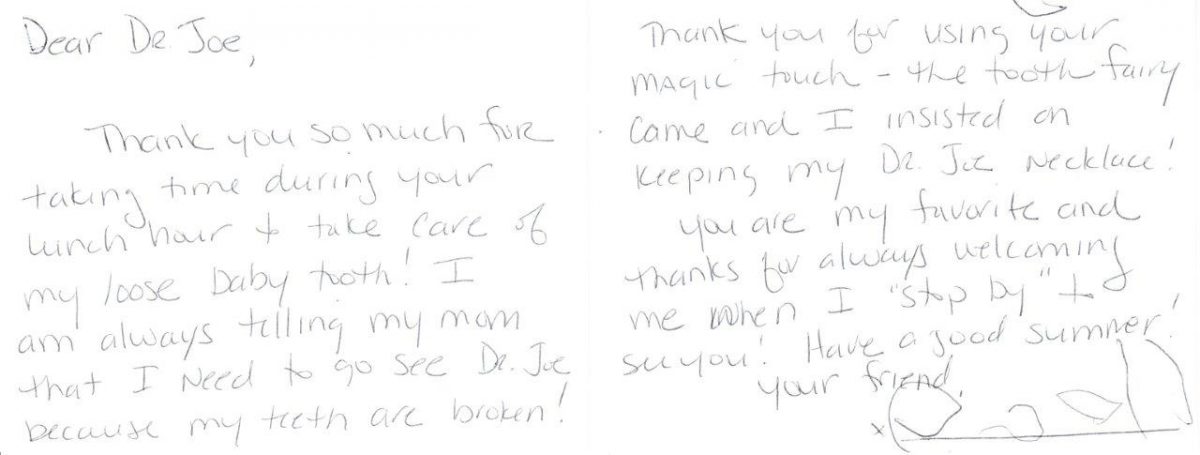 Dear Dr. Joe,
Thank you so much for
taking time during your
lunch hour + take care of
my loose baby tooth! I
am always telling my mom
that I need to go see Dr. Joe
because my teeth are broken!
Thank you for using your
magic touch - the tooth fairy
came and I insisted on
keeping my Dr. Joe necklace!
You are my favorite and
thanks for always welcoming
me when I "stop by" +
see you! Have a good summer!
Your friend,
x